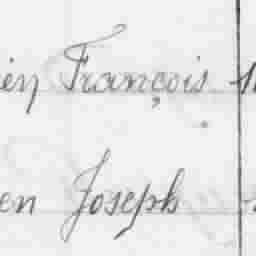 François
en Joseph